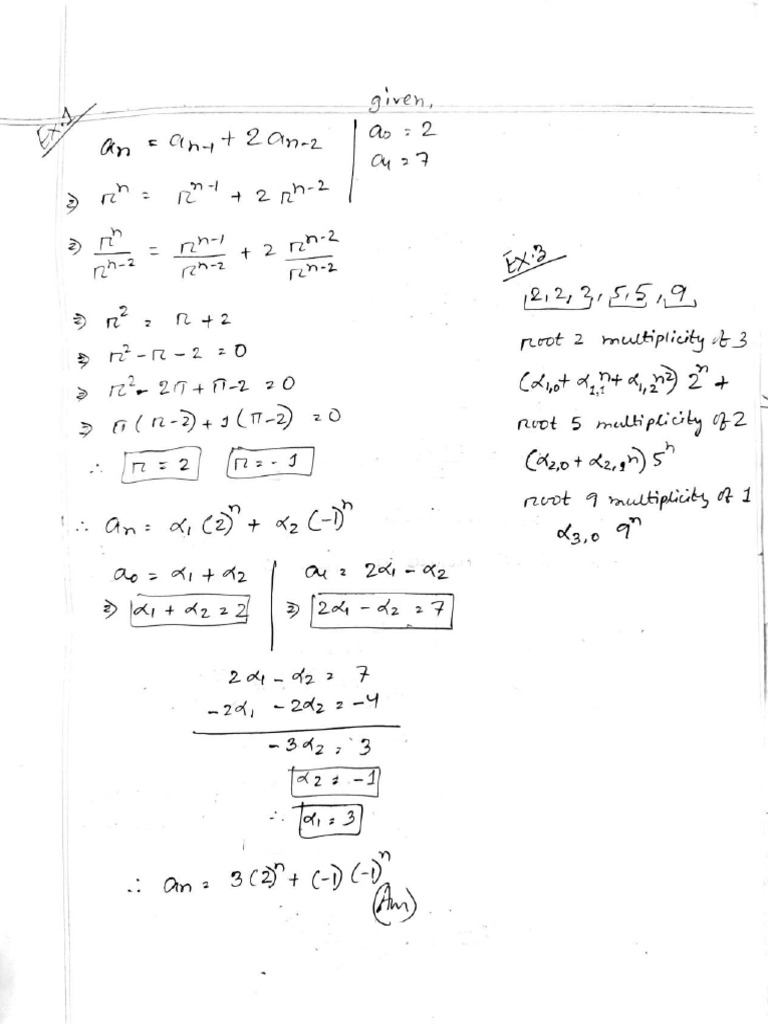 Ex:1
given,
aₙ = aₙ₋₁ + 2aₙ₋₂ | a₀ = 2
a₁ = 7
⇒ rⁿ = rⁿ⁻¹ + 2rⁿ⁻²
⇒ rⁿ/rⁿ⁻² = rⁿ⁻¹/rⁿ⁻² + 2 rⁿ⁻²/rⁿ⁻²
⇒ r² = r + 2
⇒ r² - r - 2 = 0
⇒ r² - 2r + r - 2 = 0
⇒ r(r-2) + 1(r-2) = 0
∴ r = 2 r = -1
∴ aₙ = α₁(2)ⁿ + α₂(-1)ⁿ
a₀ = α₁ + α₂ | a₁ = 2α₁ - α₂
⇒ α₁ + α₂ = 2 | ⇒ 2α₁ - α₂ = 7
2α₁ - α₂ = 7
-2α₁ - 2α₂ = -4
-3α₂ = 3
α₂ = -1
∴ α₁ = 3
∴ aₙ = 3(2)ⁿ + (-1)(-1)ⁿ
(Am)
Ex:3
2, 2, 2, 5, 5, 9
root 2 multiplicity of 3
(α₁,₀ + α₁,₁n + α₁,₂n²) 2ⁿ +
root 5 multiplicity of 2
(α₂,₀ + α₂,₁n) 5ⁿ
root 9 multiplicity of 1
α₃,₀ 9ⁿ